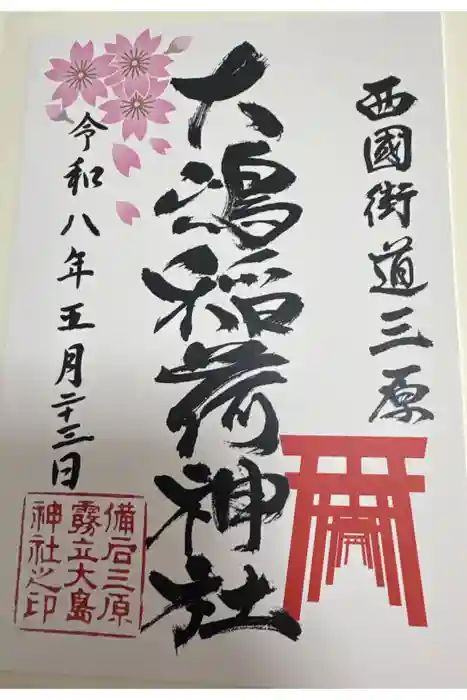 西國街道三原
大嶋稲荷神社
令和八年五月二十三日
備后三原
霧立大島
神社之印